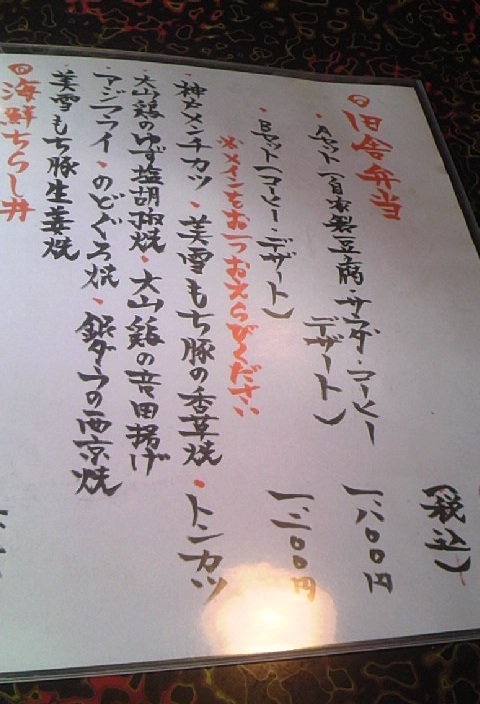 (税込)
◎田舎弁当
・Aセット(自家製豆腐・サラダ・コーヒー
デザート) 一、八〇〇円
・Bセット(コーヒー・デザート) 一、二〇〇円
※メインをお一つおえらびください
・神戸メンチカツ・美雪もち豚の香草焼・トンカツ
・大山鶏のゆず塩胡椒焼・大山鶏の竜田揚げ
・アジフライ・のどぐろ焼・銀ダラの西京焼
・美雪もち豚生姜焼
◎海鮮ちらし丼